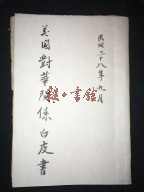 民國三十八年九月
美國對華關係白皮書